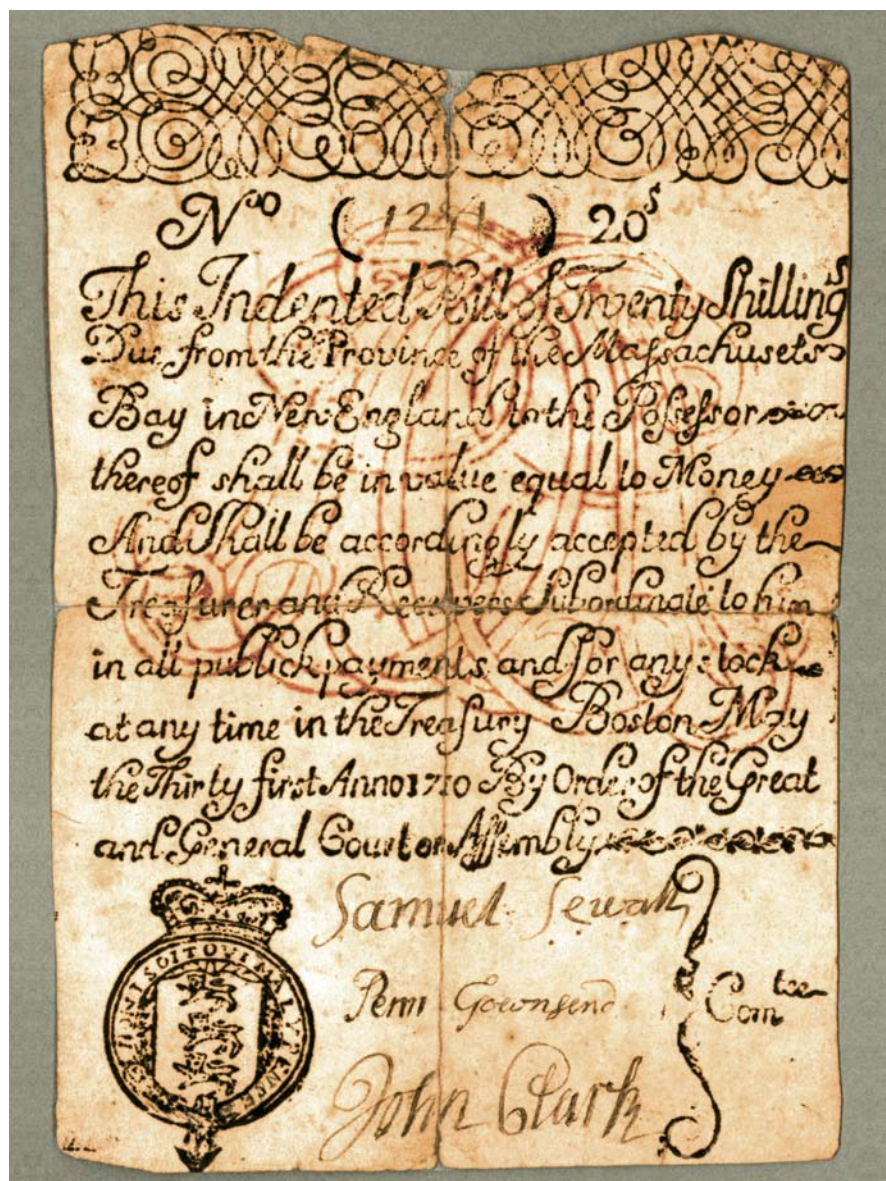 No (1241) 20s
This Indented Bill of Twenty Shillings
Due from the Province of the Massachusets
Bay in New England to the Possessor
thereof shall be in value equal to Money
And Shall be accordingly accepted by the
Treasurer and Receivers Subordinate to him
in all publick payments and for any stock
at any time in the Treasury Boston May
the Thirty first Anno 1710 By Order of the Great
and General Court or Assembly
Samuel Sewall
Penn Townsend
Comtee
John Clark
HONI SOIT QVI MAL Y PENCE